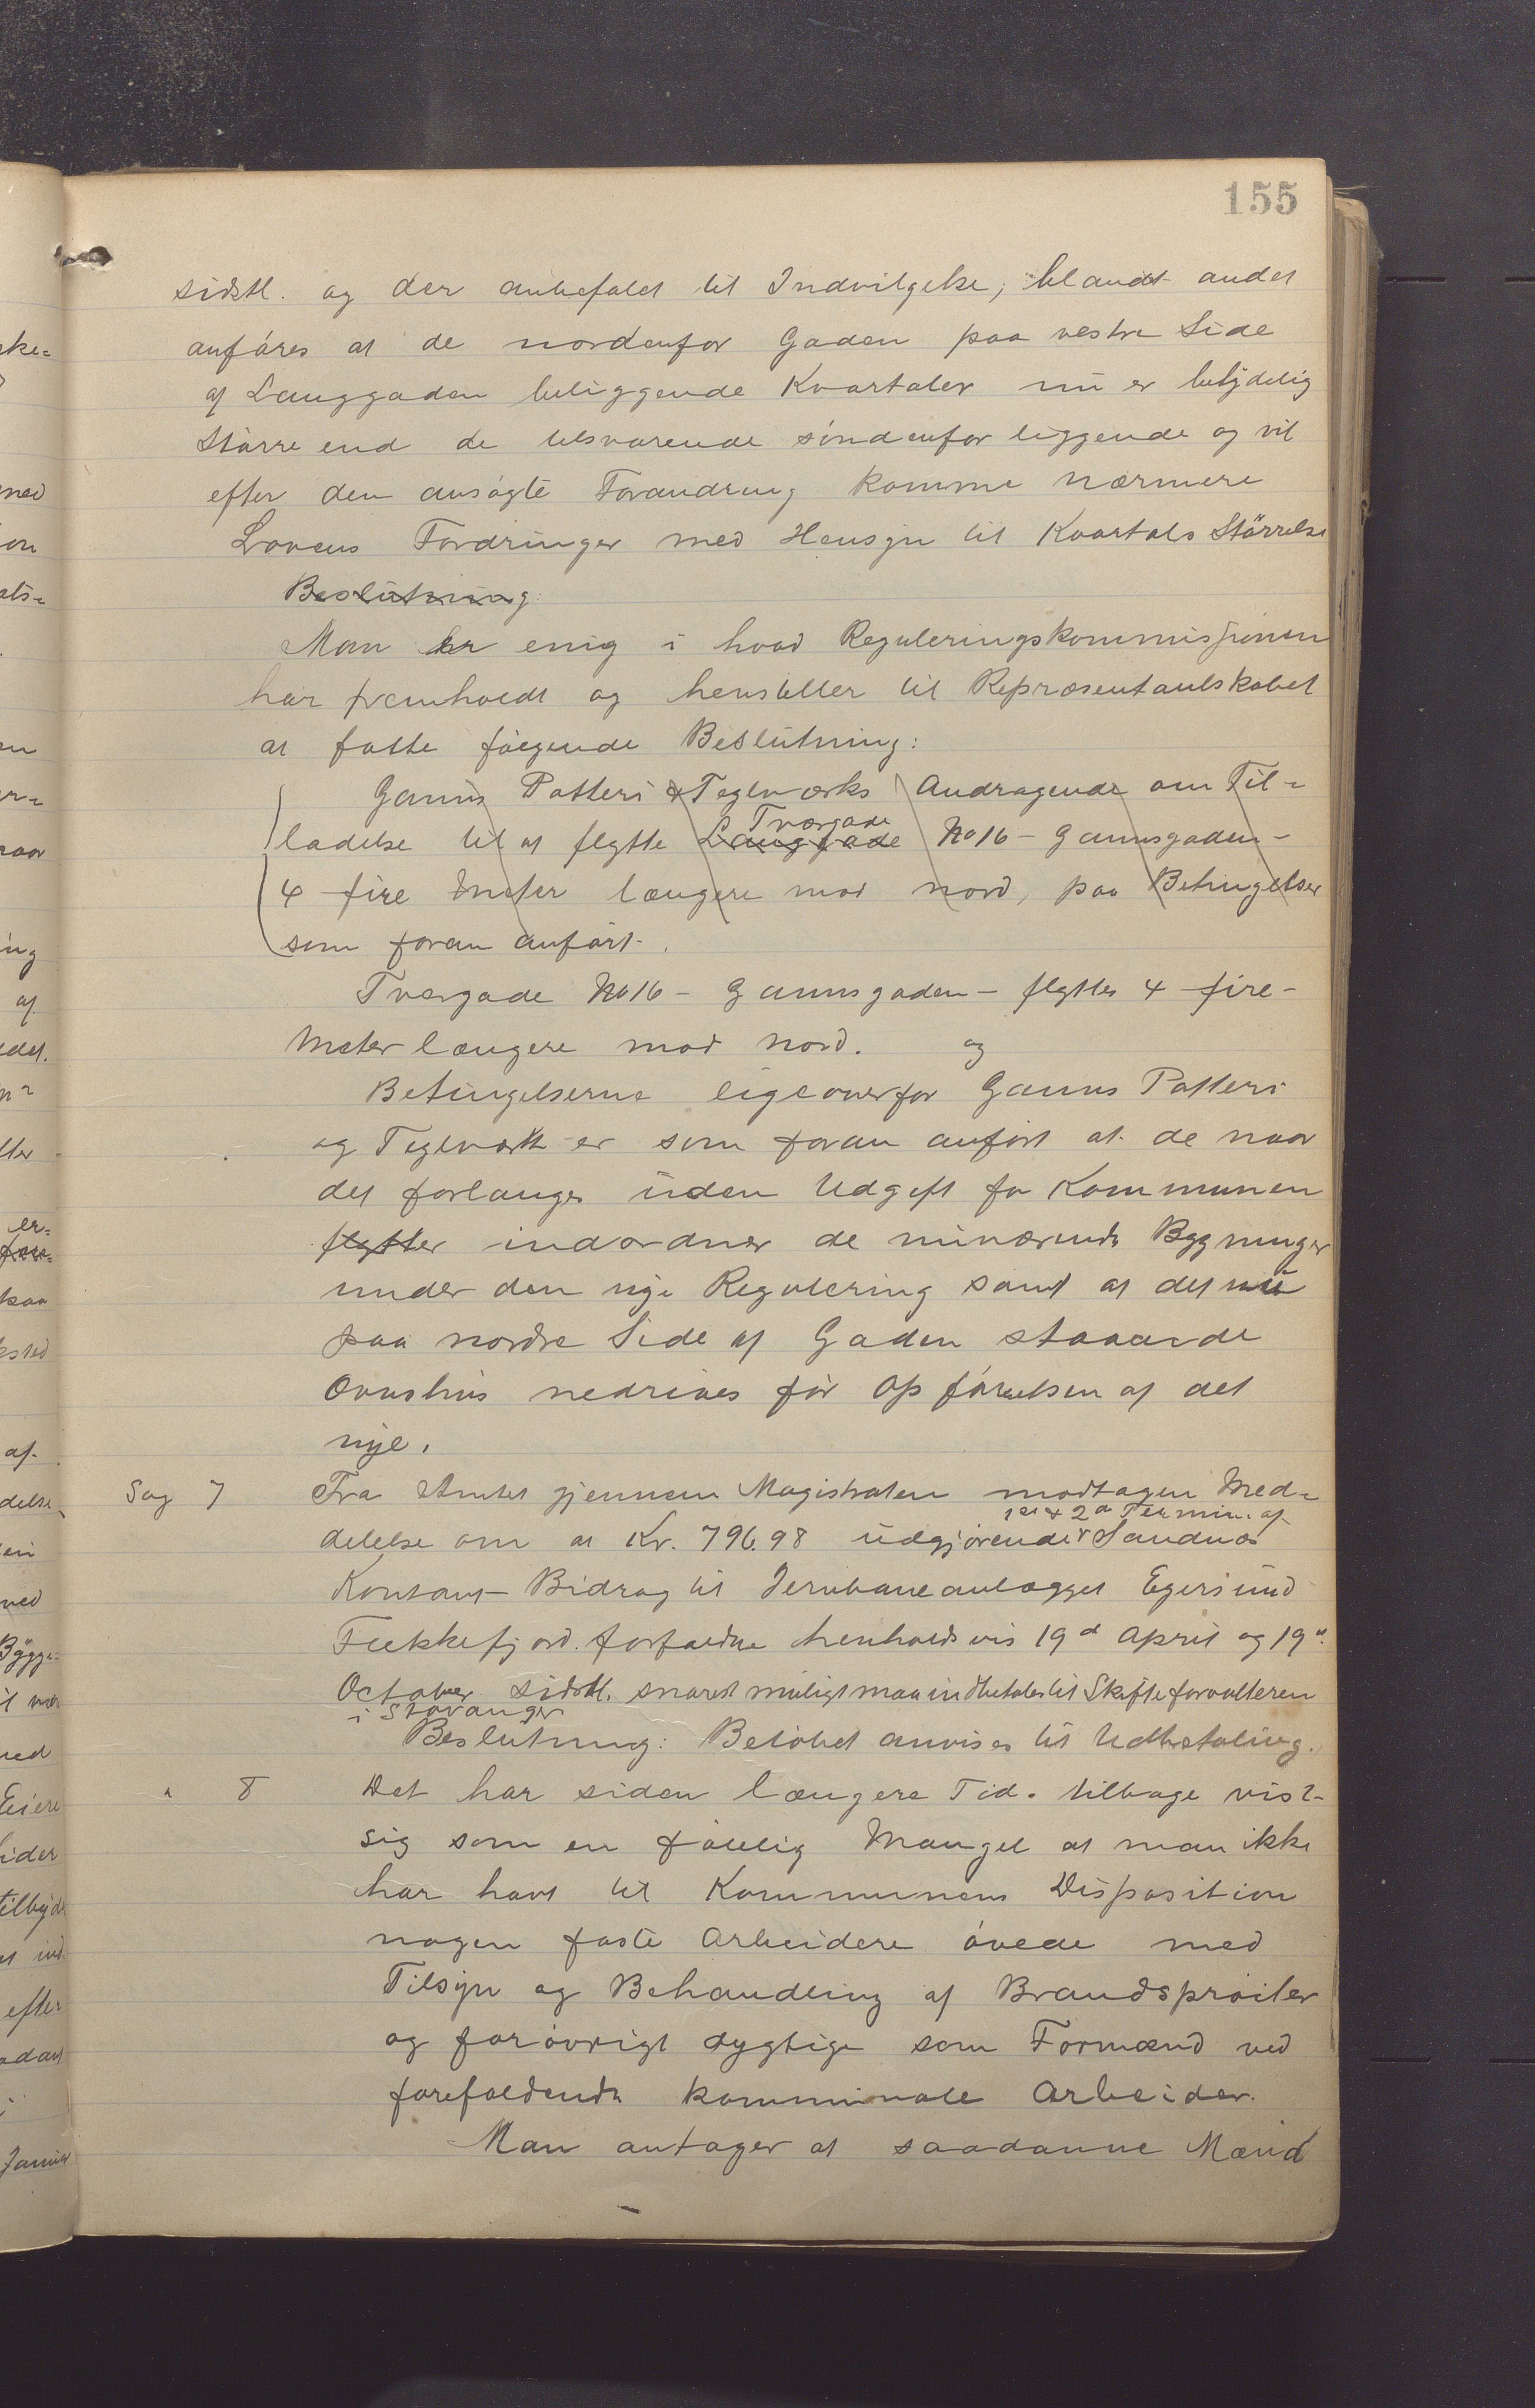 155
sidstl. og der anbefalet til Indvilgelse, blandt andet
anføres at de nordenfor Gaden paa vestre Side
af Langgaden beliggende Kvartaler nu er betydelig
større end de tilsvarende søndenfor liggende og vil
efter den ansøgte Forandring komme nærmere
Lovens Fordringer med Hensyn til Kvartals Størrelse
Beslutning:
Man er enig i hvad Reguleringskommissjonen
har fremholdt og henstiller til Repræsentantskabet
at fatte følgende Beslutning:
Ganns Potteri & Teglværks Andragende om Til-
Tværgade
ladelse til at flytte Langgade No 16 - Gannsgaden -
4 fire Meter længere mod nord, paa Betingelser
som foran anført.
Tværgade No 16 - Gannsgaden - flyttes 4 - fire -
Meter længere mod nord. og
Betingelserne ligeoverfor Ganns Potteri
og Teglværk er som foran anført at de naar
det forlanges uden Udgift for Kommunen
flytter indordner de nuværende Bygninger
under den nye Regulering samt at det nu
paa nordre Side af Gaden staaende
Ovnshus nedrives før Opførelsen af det
nye.
Sag 7 Fra Amtet gjennem Magistraten modtagen Med-
1ste & 2den Termin af
delelse om at Kr. 796.98 udgjørende Sandnæs
Kontant-Bidrag til Jernbaneanlægget Egersund
Flekkefjord. forfaldne henholdsvis 19d April og 19d
October sidstl. snarest muligt maa indbetales til Skifteforvalteren
i Stavanger
Beslutning: Beløbet anvises til Udbetaling.
" 8 Det har siden længere Tid tilbage vist
sig som en følelig Mangel at man ikke
har havt til Kommunens Disposition
nogen faste Arbeidere øvede med
Tilsyn og Behandling af Brandsprøiter
og forøvrigt dygtige som Formænd ved
forefaldende kommunale Arbeider.
Man antager at saadanne Mænd